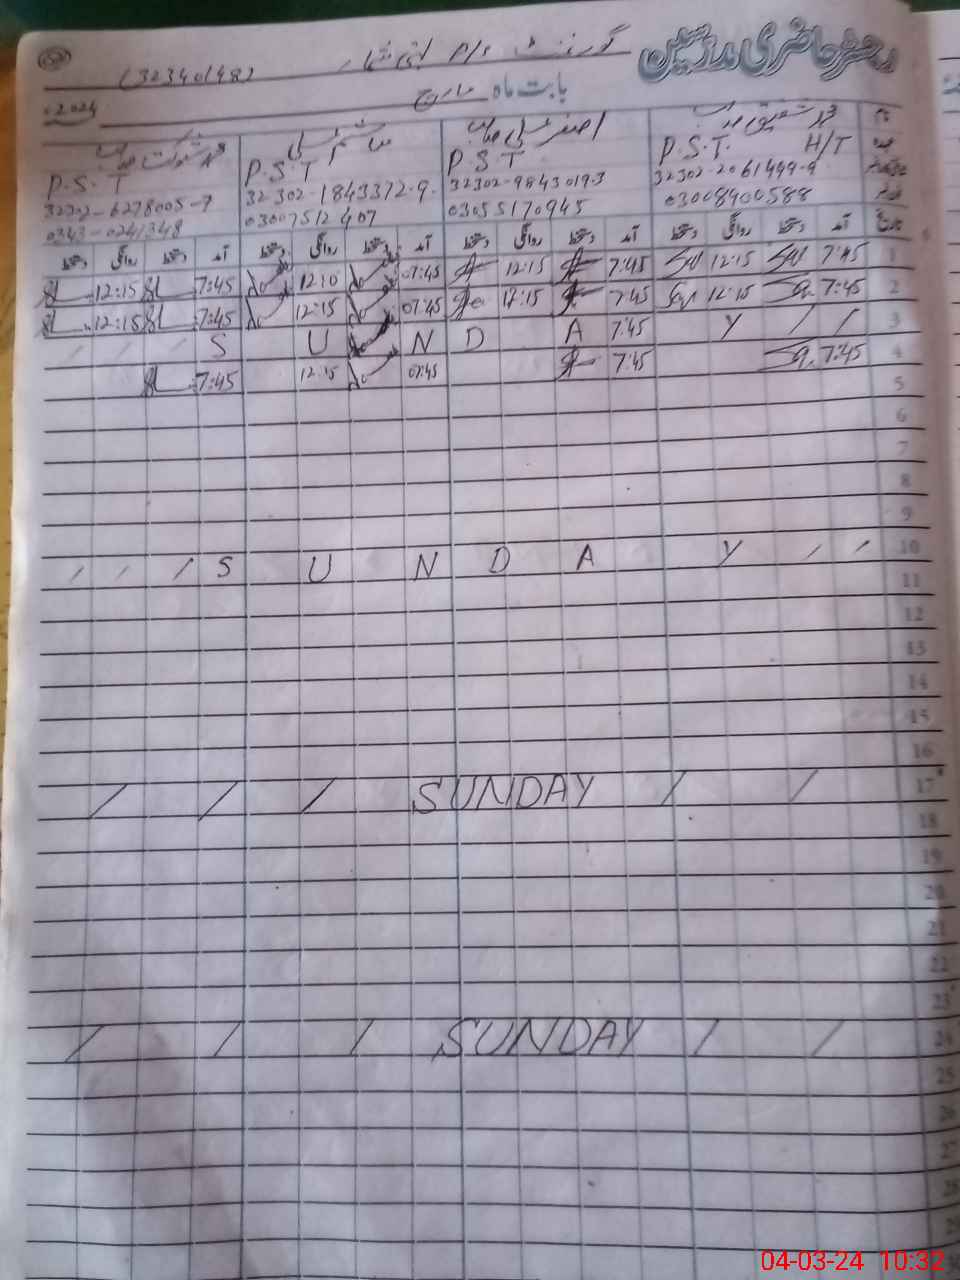 رجسٹر حاضری مدرسین
گورنمنٹ
(32340148)
بابت ماہ مارچ 2024
محمد شفیق صاحب
اصغر علی صاحب
P.S.T. H/T
P.S.T
P.S.T
P.S.T
32302-2061499-9
32302-9843019-3
32302-1843372-9
32302-6278005-7
03008900588
03055170945
03007512407
0343-0241348
تاریخ آمد دستخط روانگی دستخط آمد دستخط روانگی دستخط آمد دستخط روانگی دستخط آمد دستخط روانگی دستخط
1 7:45 12:15 7:45 12:15 07:45 12:10 7:45 12:15
2 7:45 12:15 7:45 12:15 07:45 12:15 7:45 12:15
3 / / / S U N D A 7:45 Y / /
4 7:45 7:45 07:45 12:15 7:45
5
6
7
8
9
10 / / / S U N D A Y / /
11
12
13
14
15
16
17 / / / SUNDAY / /
18
19
20
21
22
23
24 / / / SUNDAY / /
25
26
27
28
04-03-24 10:32